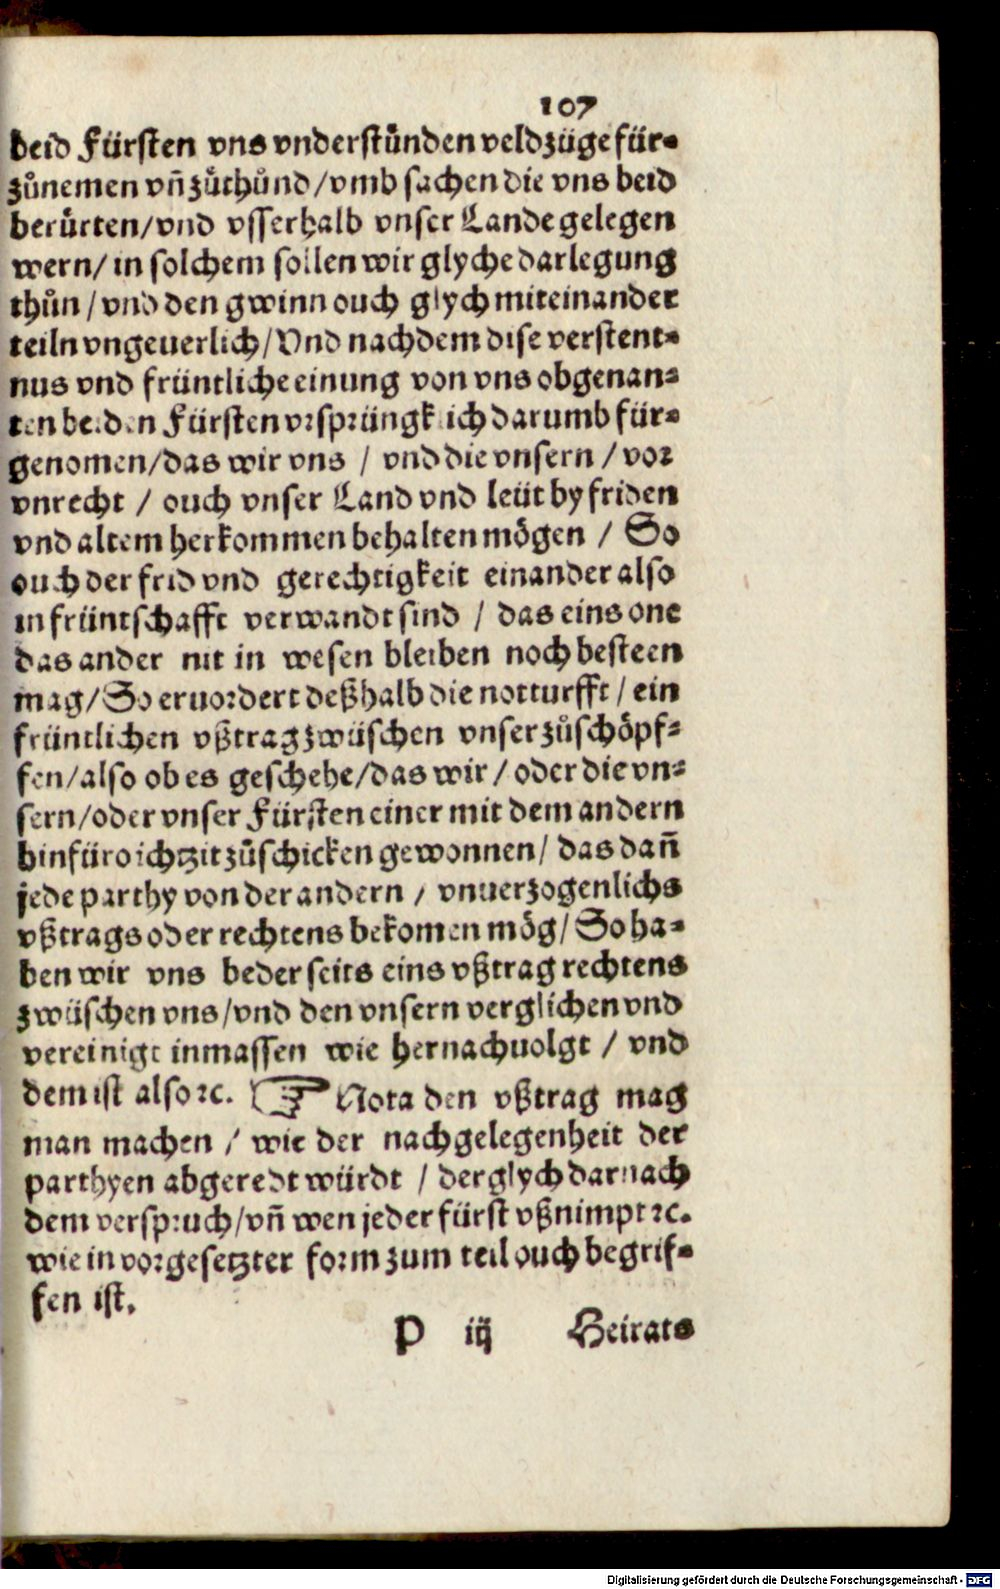 107
beid Fürsten vns vnderstůnden veldzüge für⸗
zůnemen vñ zůthůnd/vmb sachen die vns beid
berůrten/vnd vsserhalb vnser Lande gelegen
wern/in solchem sollen wir glyche darlegung
thůn/vnd den gwinn ouch glych miteinander
teiln vngeuerlich/Vnd nachdem dise verstent⸗
nus vnd früntliche einung von vns obgenan⸗
ten beiden Fürsten vrsprüngklich darumb für⸗
genomen/das wir vns / vnd die vnsern / vor
vnrecht / ouch vnser Land vnd leüt by friden
vnd altem herkommen behalten mögen / So
ouch der frid vnd gerechtigkeit einander also
in früntschafft verwandt sind / das eins one
das ander nit in wesen bleiben noch besteen
mag/So eruordert deßhalb die notturfft/ein
früntlichen vßtrag zwüschen vnser zůschöpf⸗
fen/also ob es geschehe/das wir/oder die vn⸗
sern/oder vnser Fürsten einer mit dem andern
hinfüro ichtzit zůschicken gewonnen/ das dañ
jede parthy von der andern / vnuerzogenlichs
vßtrags oder rechtens bekomen mög/So ha⸗
ben wir vns beder seits eins vßtrag rechtens
zwüschen vns/vnd den vnsern verglichen vnd
vereinigt inmassen wie hernachuolgt / vnd
dem ist also ꝛc. ☞ Nota den vßtrag mag
man machen / wie der nachgelegenheit der
parthyen abgeredt würdt / der glych darnach
dem verspruch/vñ wen jeder fürst vßnimpt ꝛc.
wie in vorgesetzter form zum teil ouch begrif⸗
fen ist.
P iij Heirats
Digitalisierung gefördert durch die Deutsche Forschungsgemeinschaft - DFG